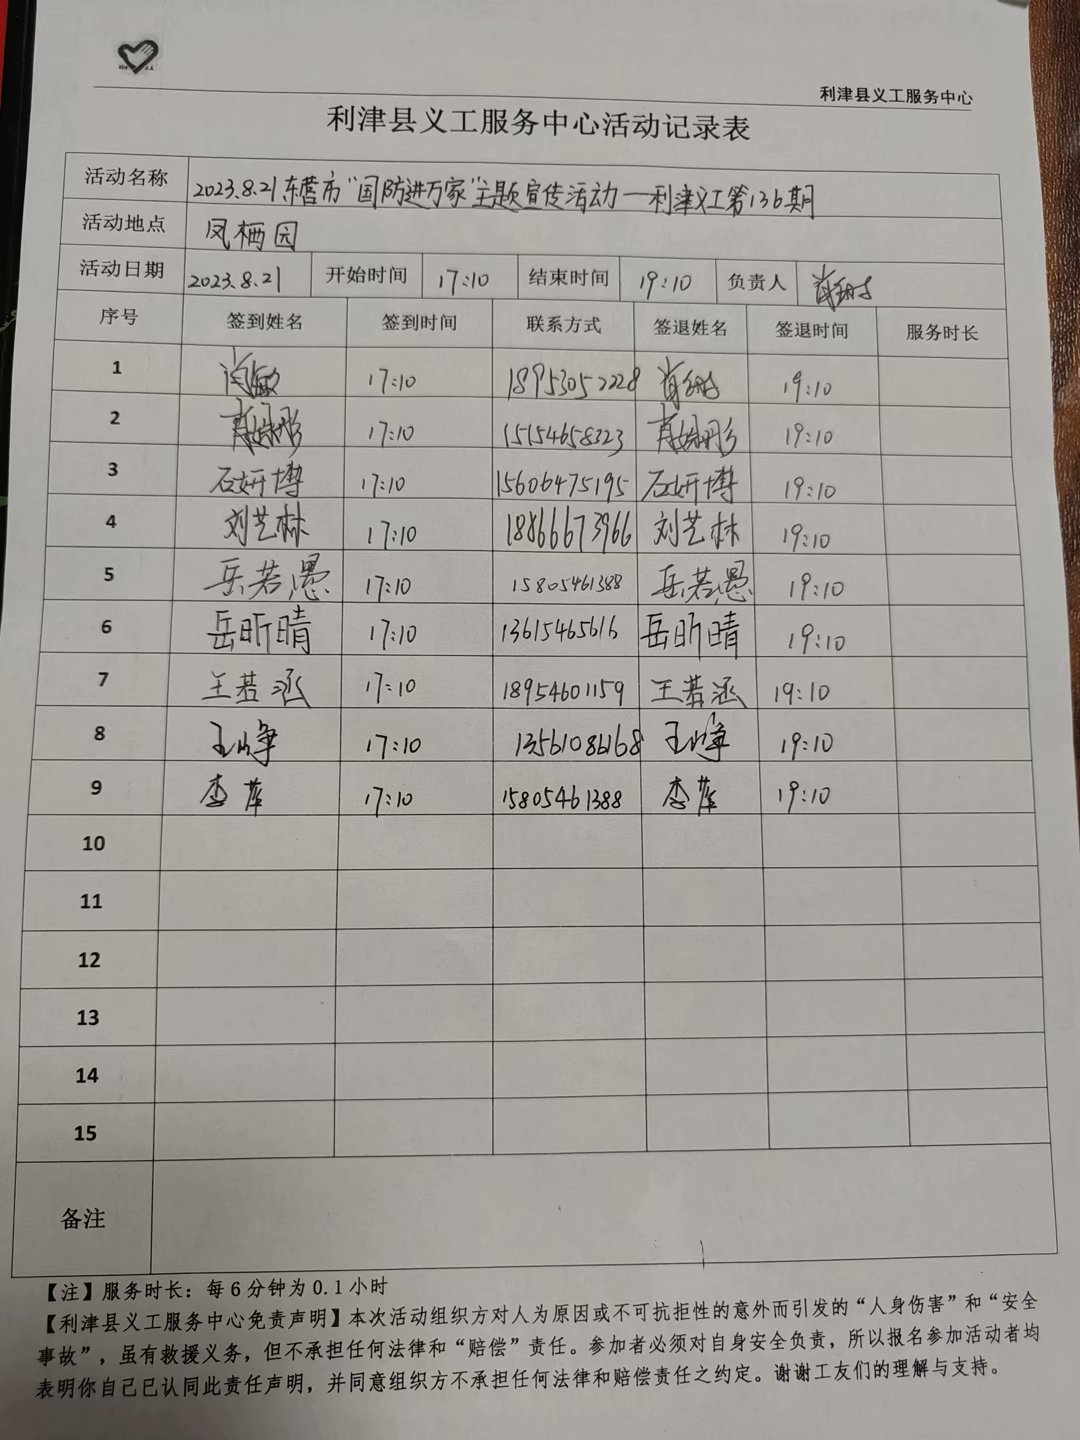 利津县义工服务中心
利津县义工服务中心活动记录表
活动名称 2023.8.21东营市“国防进万家”主题宣传活动—利津义工第136期
活动地点 凤栖园
活动日期 2023.8.21 开始时间 17:10 结束时间 19:10 负责人
序号 签到姓名 签到时间 联系方式 签退姓名 签退时间 服务时长
1 17:10 18953052228 19:10
2 17:10 15154658323 19:10
3 石妍博 17:10 15606475195 石妍博 19:10
4 刘艺林 17:10 18866673966 刘艺林 19:10
5 岳若愚 17:10 15805461388 岳若愚 19:10
6 岳昕晴 17:10 13615465616 岳昕晴 19:10
7 王若涵 17:10 18954601159 王若涵 19:10
8 王峥 17:10 13561086168 王峥 19:10
9 李萍 17:10 15805461388 李萍 19:10
10
11
12
13
14
15
备注
【注】服务时长：每6分钟为0.1小时
【利津县义工服务中心免责声明】本次活动组织方对人为原因或不可抗拒性的意外而引发的“人身伤害”和“安全
事故”，虽有救援义务，但不承担任何法律和“赔偿”责任。参加者必须对自身安全负责，所以报名参加活动者均
表明你自己已认同此责任声明，并同意组织方不承担任何法律和赔偿责任之约定。谢谢工友们的理解与支持。